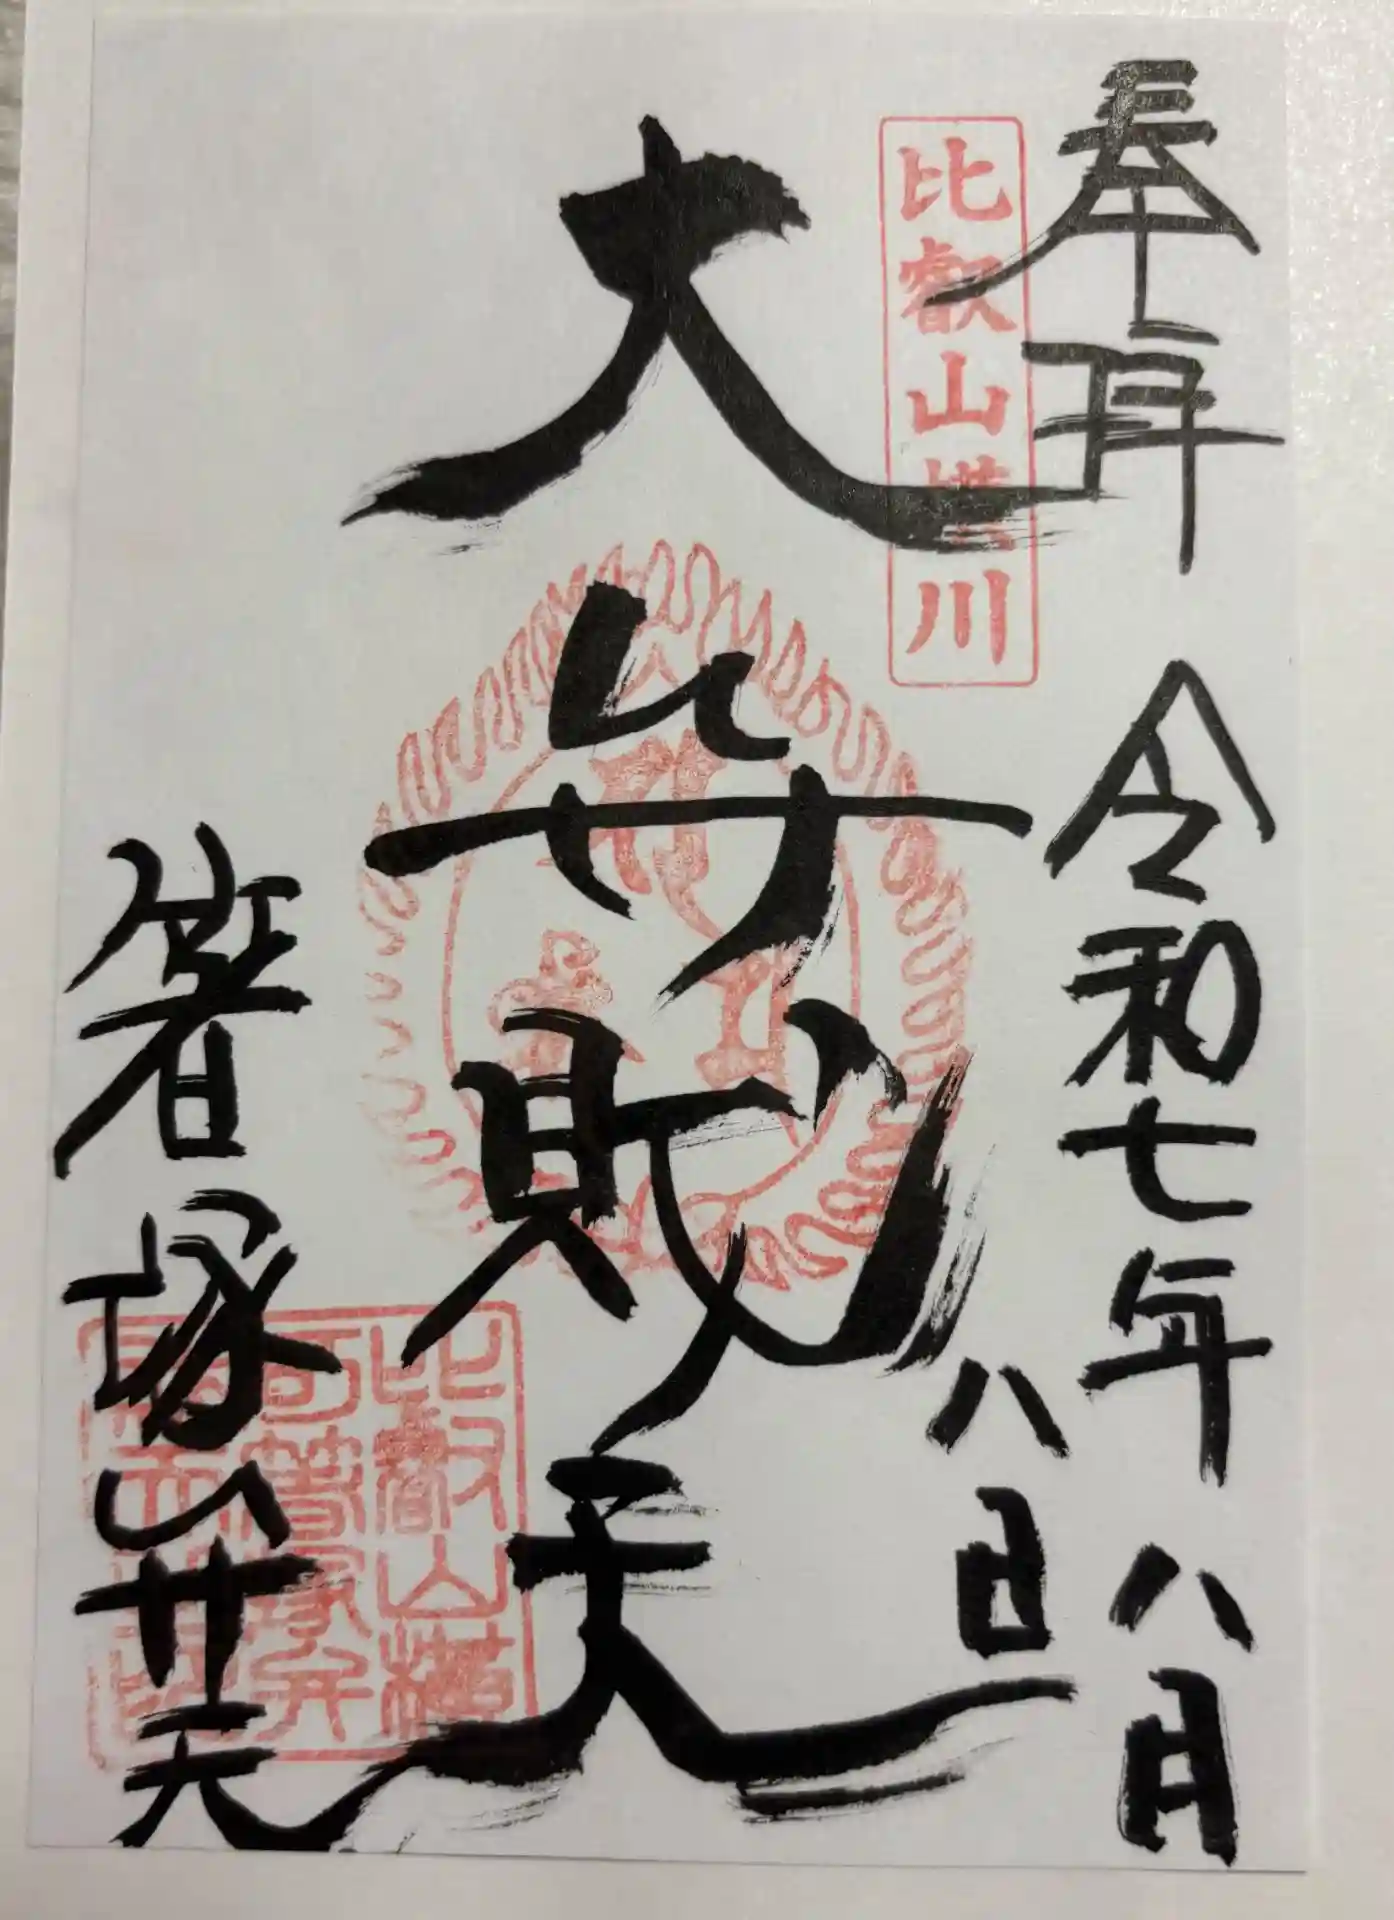 奉拝
令和七年八月
八日
比叡山横川
大弁財天
箸塚弁天
比叡山横
川箸塚弁